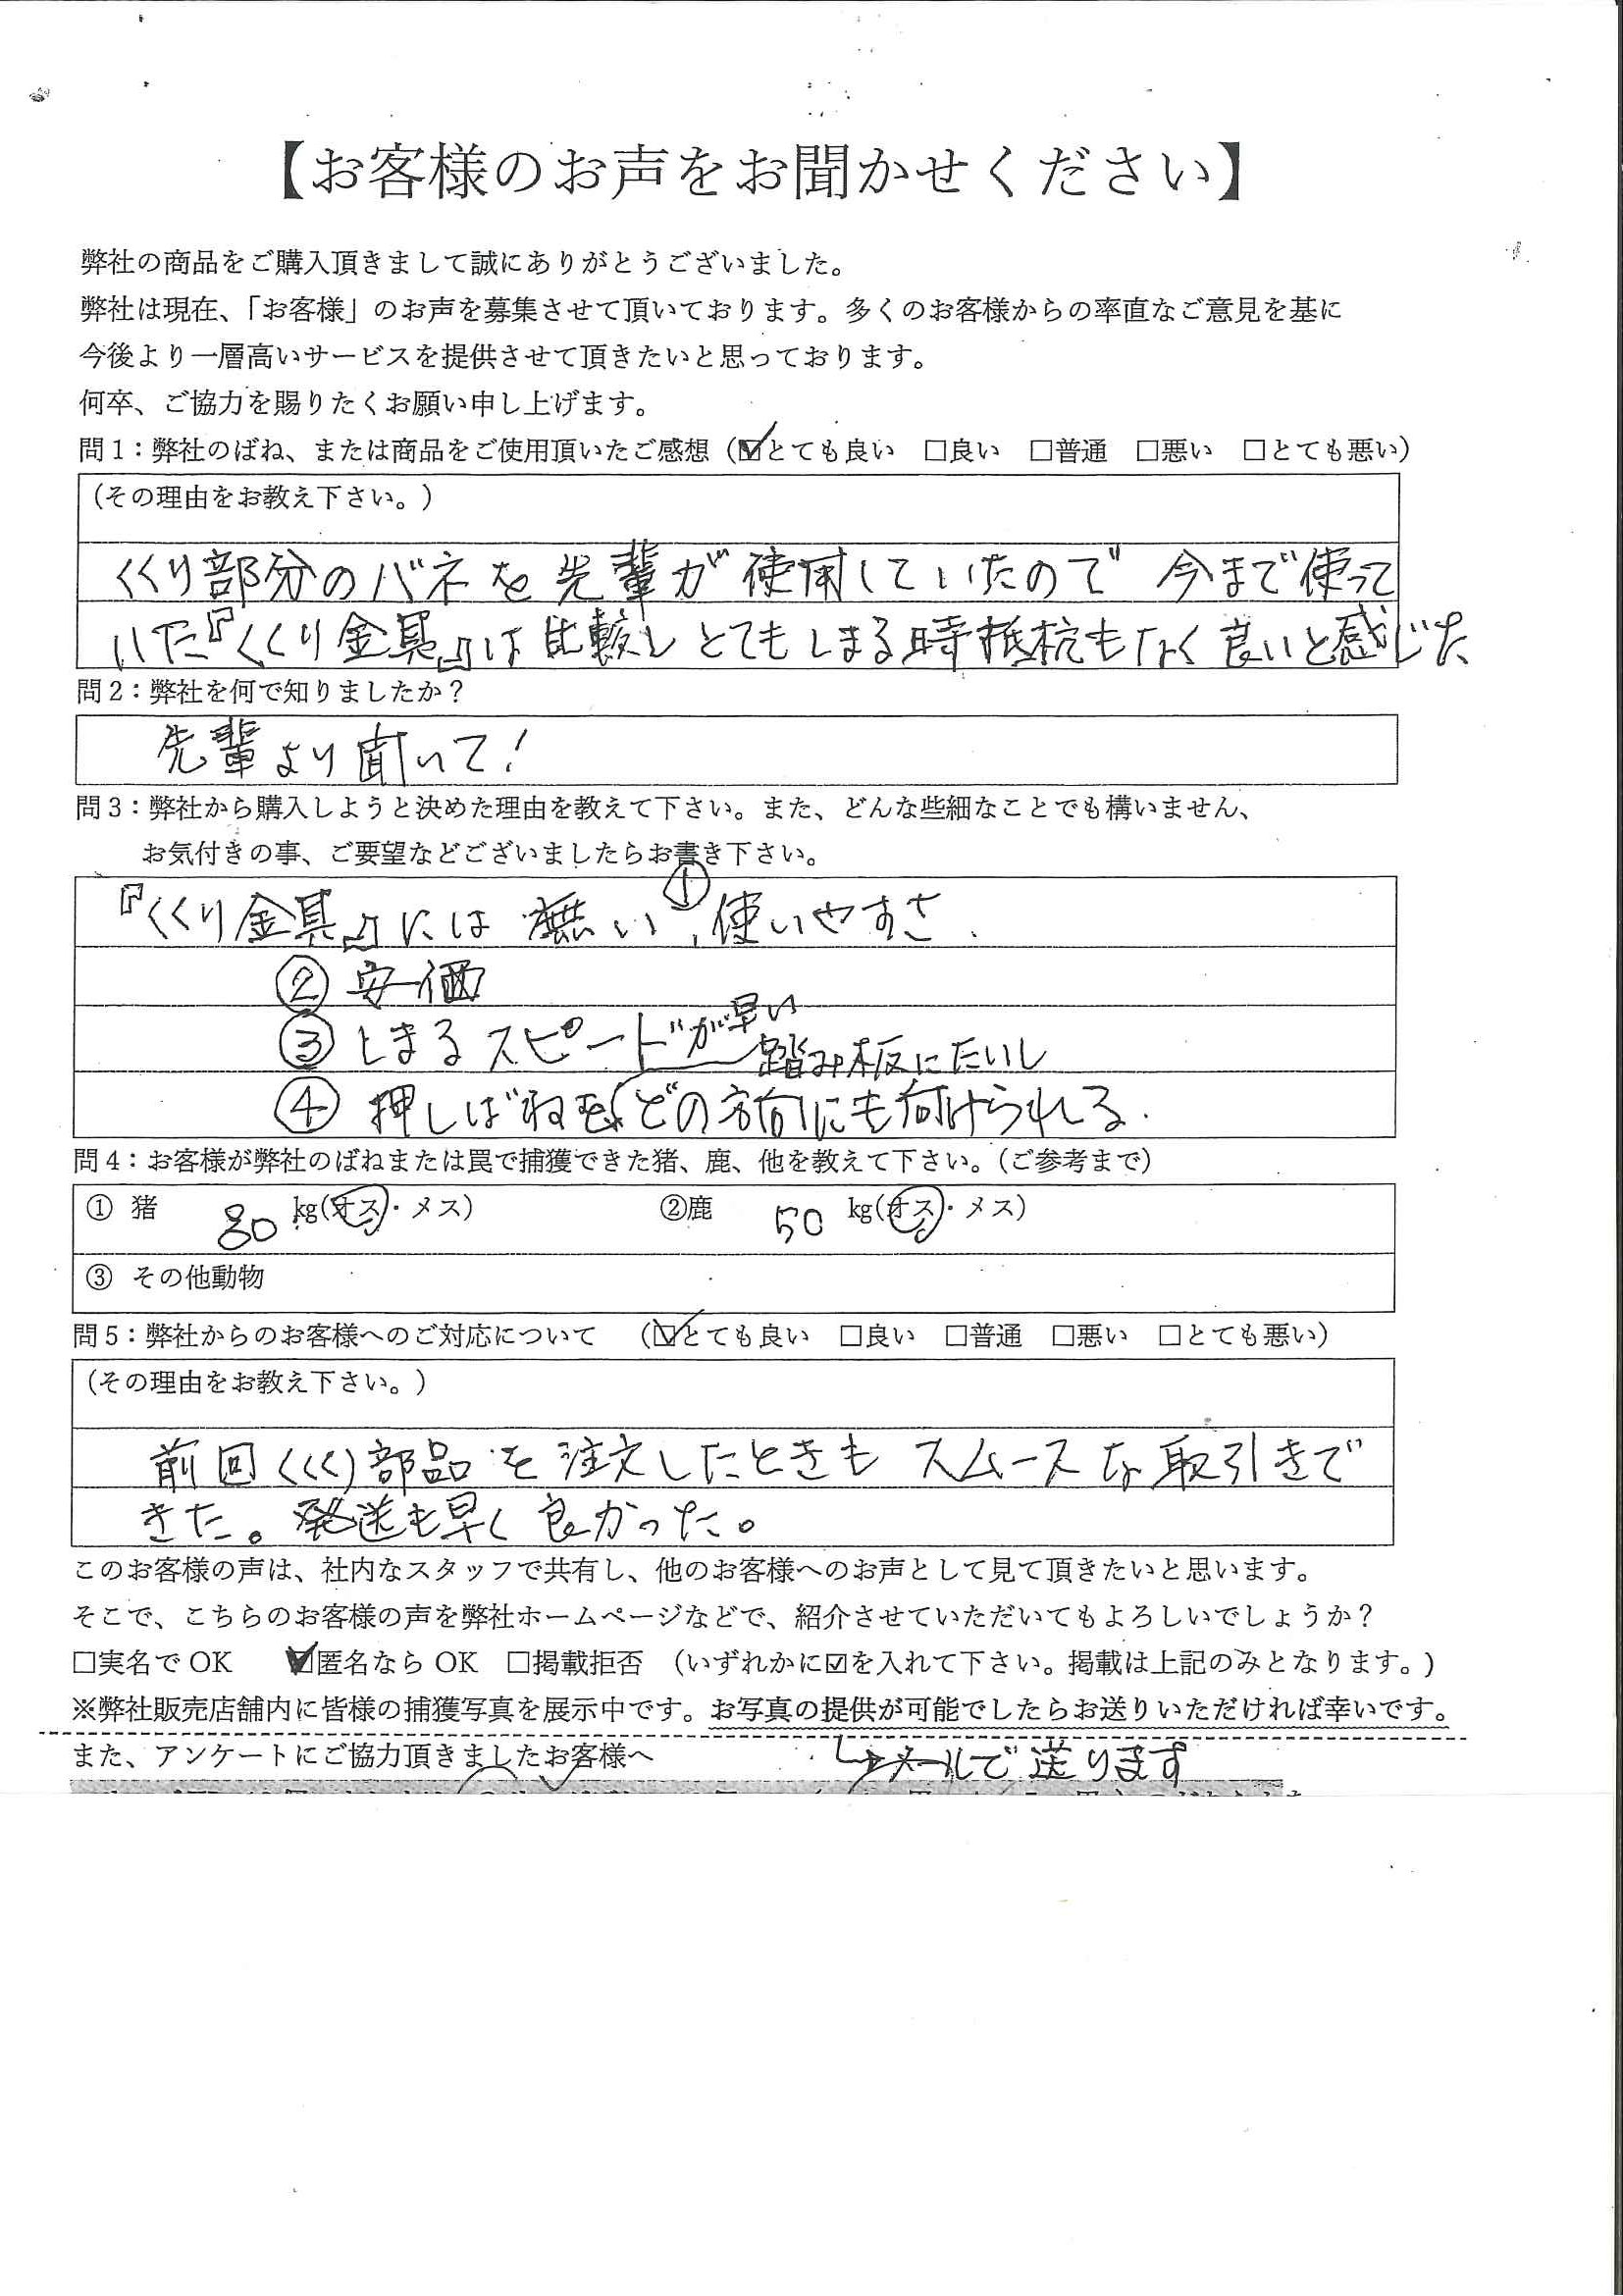 【お客様のお声をお聞かせください】
弊社の商品をご購入頂きまして誠にありがとうございました。
弊社は現在、「お客様」のお声を募集させて頂いております。多くのお客様からの率直なご意見を基に
今後より一層高いサービスを提供させて頂きたいと思っております。
何卒、ご協力を賜りたくお願い申し上げます。
問1：弊社のばね、または商品をご使用頂いたご感想（☑とても良い　□良い　□普通　□悪い　□とても悪い）
（その理由をお教え下さい。）
くくり部分のバネを先輩が使用していたので 今まで使って
いた『くくり金具』は比較しとてもしまる時抵抗もなく良いと感じた
問2：弊社を何で知りましたか？
先輩より聞いて！
問3：弊社から購入しようと決めた理由を教えて下さい。また、どんな些細なことでも構いません、
お気付きの事、ご要望などございましたらお書き下さい。
『くくり金具』には無い ①使いやすさ.
② 安価
③ しまるスピードが早い
踏み板にたいし
④ 押しばねをどの方向にも向けられる.
問4：お客様が弊社のばねまたは罠で捕獲できた猪、鹿、他を教えて下さい。（ご参考まで）
① 猪　80 kg(オス・メス)　②鹿　50 kg(オス・メス)
③ その他動物
問5：弊社からのお客様へのご対応について　（☑とても良い　□良い　□普通　□悪い　□とても悪い）
（その理由をお教え下さい。）
前回くくり部品を注文したときもスムースな取引きで
きた。発送も早く良かった。
このお客様の声は、社内なスタッフで共有し、他のお客様へのお声として見て頂きたいと思います。
そこで、こちらのお客様の声を弊社ホームページなどで、紹介させていただいてもよろしいでしょうか？
□実名でOK　☑匿名ならOK　□掲載拒否　（いずれかに☑を入れて下さい。掲載は上記のみとなります。)
※弊社販売店舗内に皆様の捕獲写真を展示中です。お写真の提供が可能でしたらお送りいただければ幸いです。
また、アンケートにご協力頂きましたお客様へ　↳メールで送ります